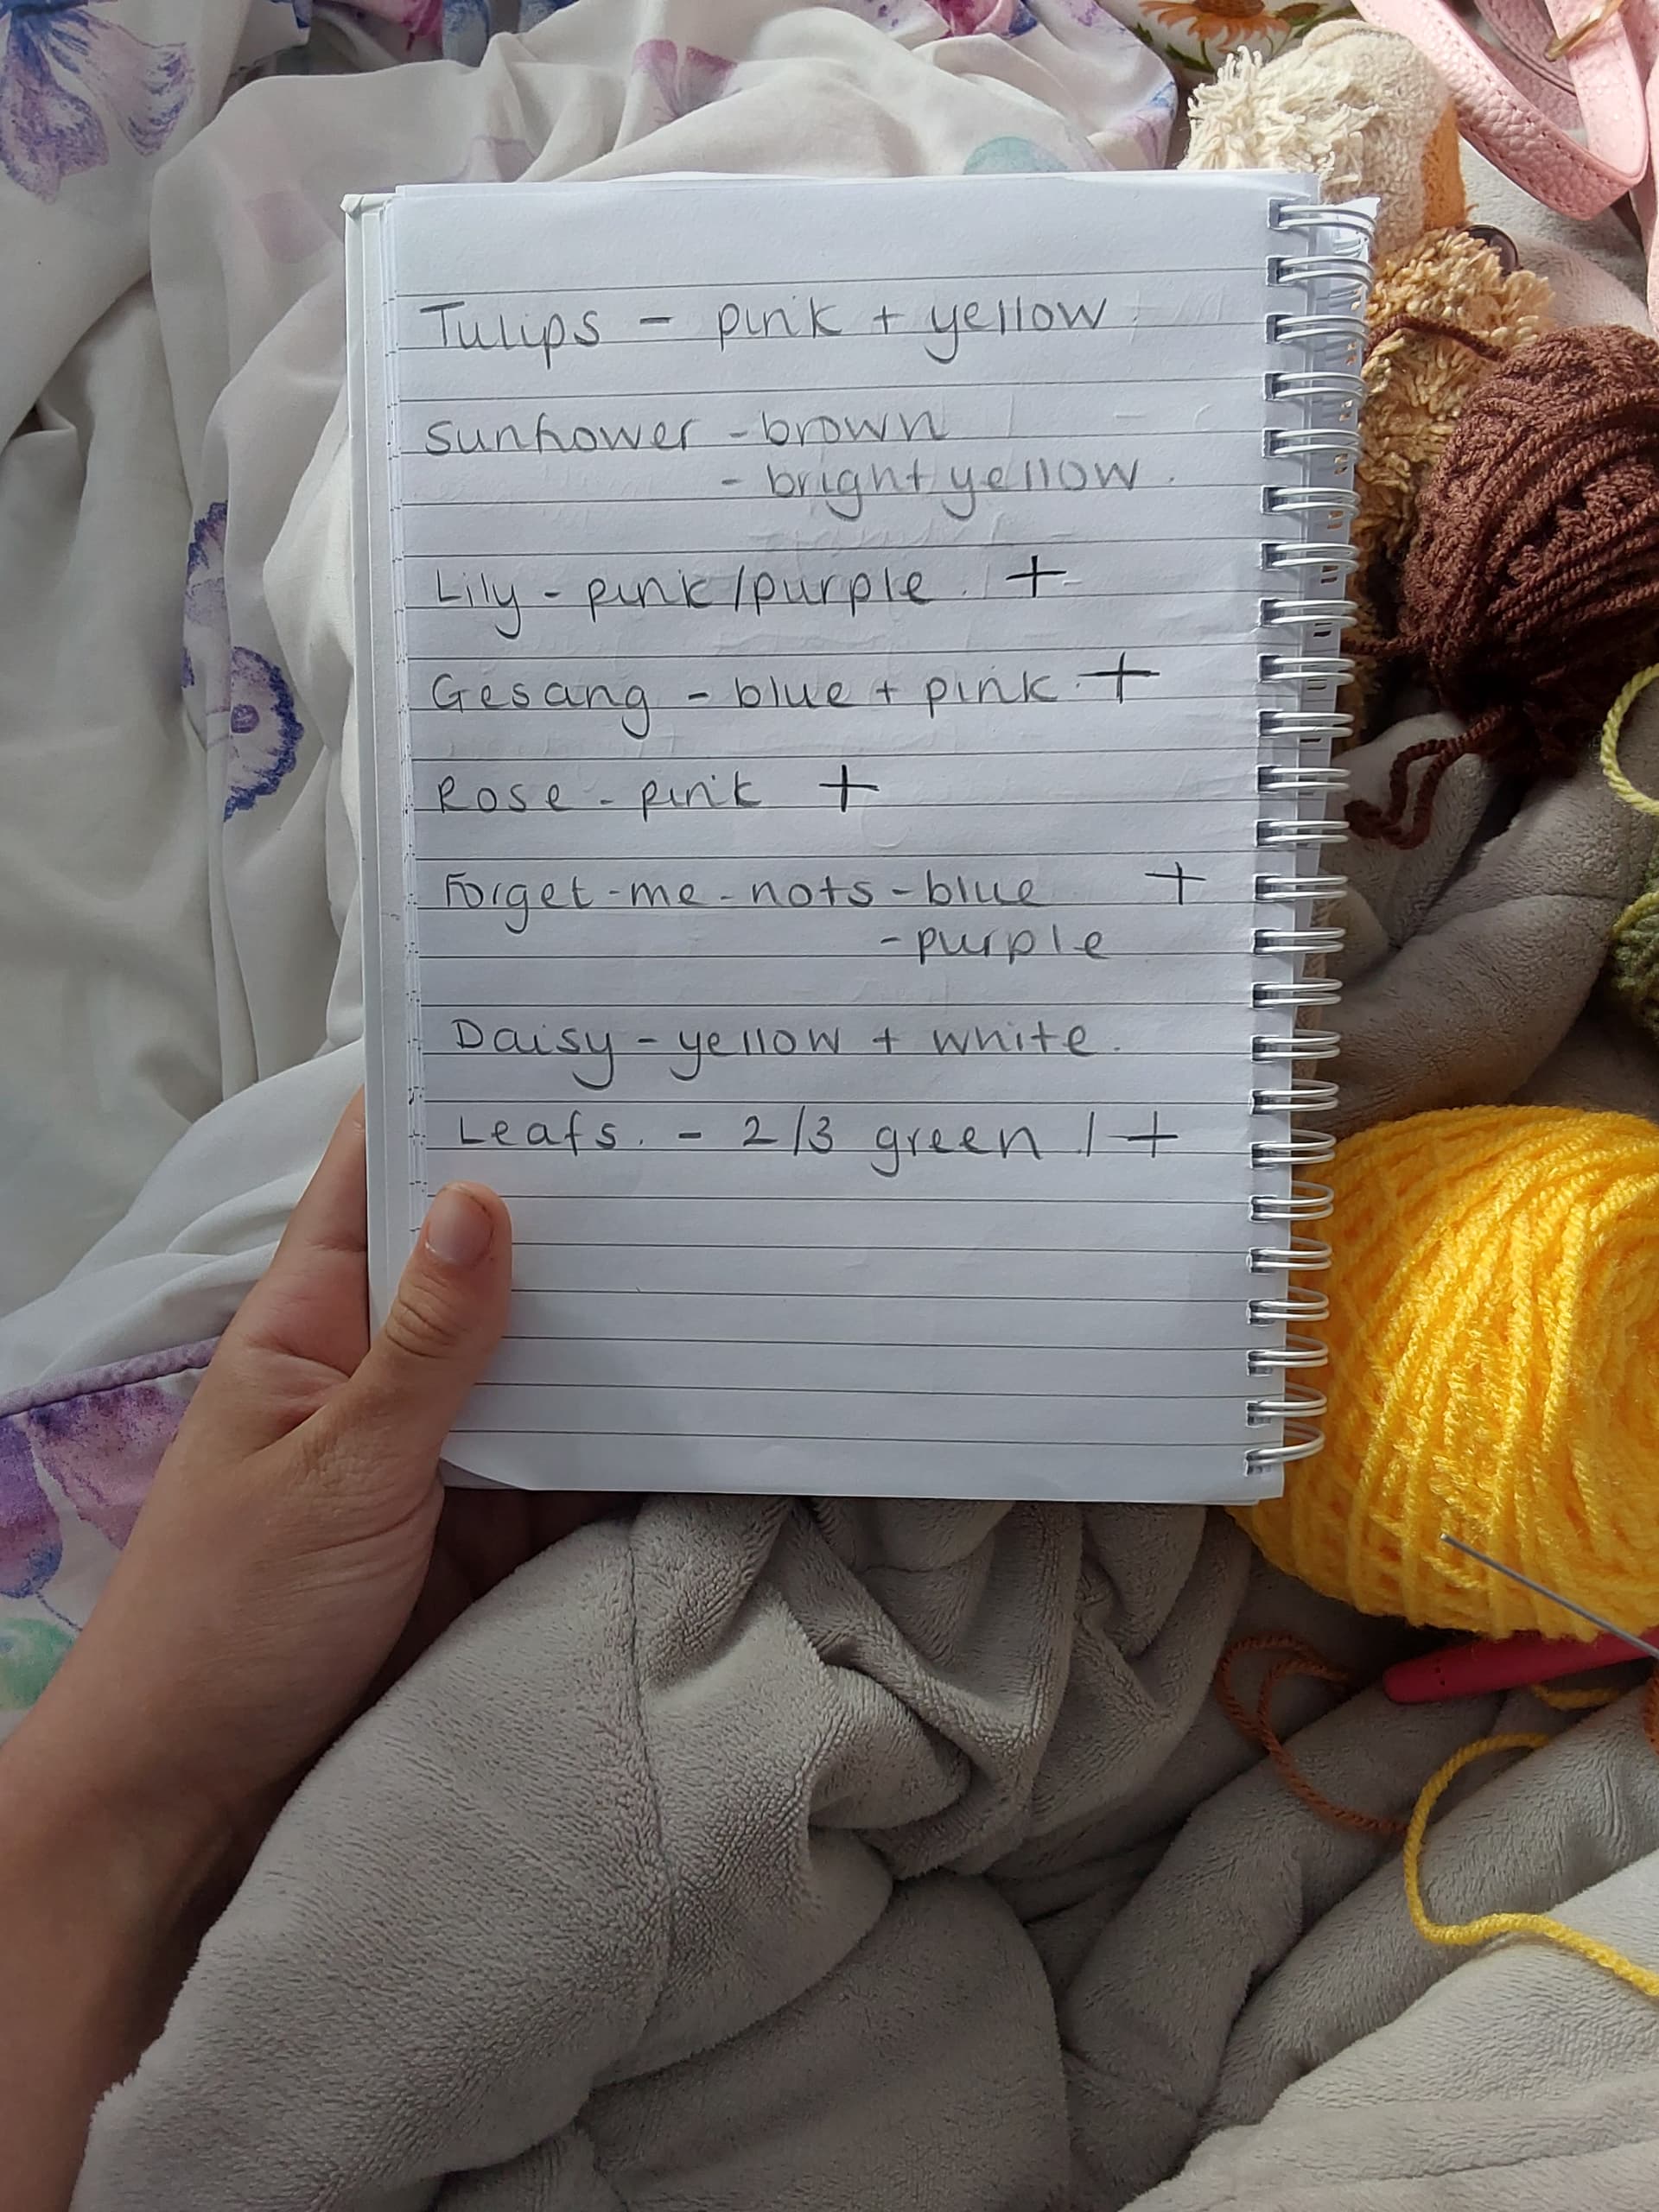 Tulips - pink + yellow
Sunflower - brown
- bright yellow.
Lily - pink/purple. +
Gesang - blue + pink. +
Rose - pink +
Forget-me-nots - blue +
- purple
Daisy - yellow + white.
Leafs. - 2/3 green / +